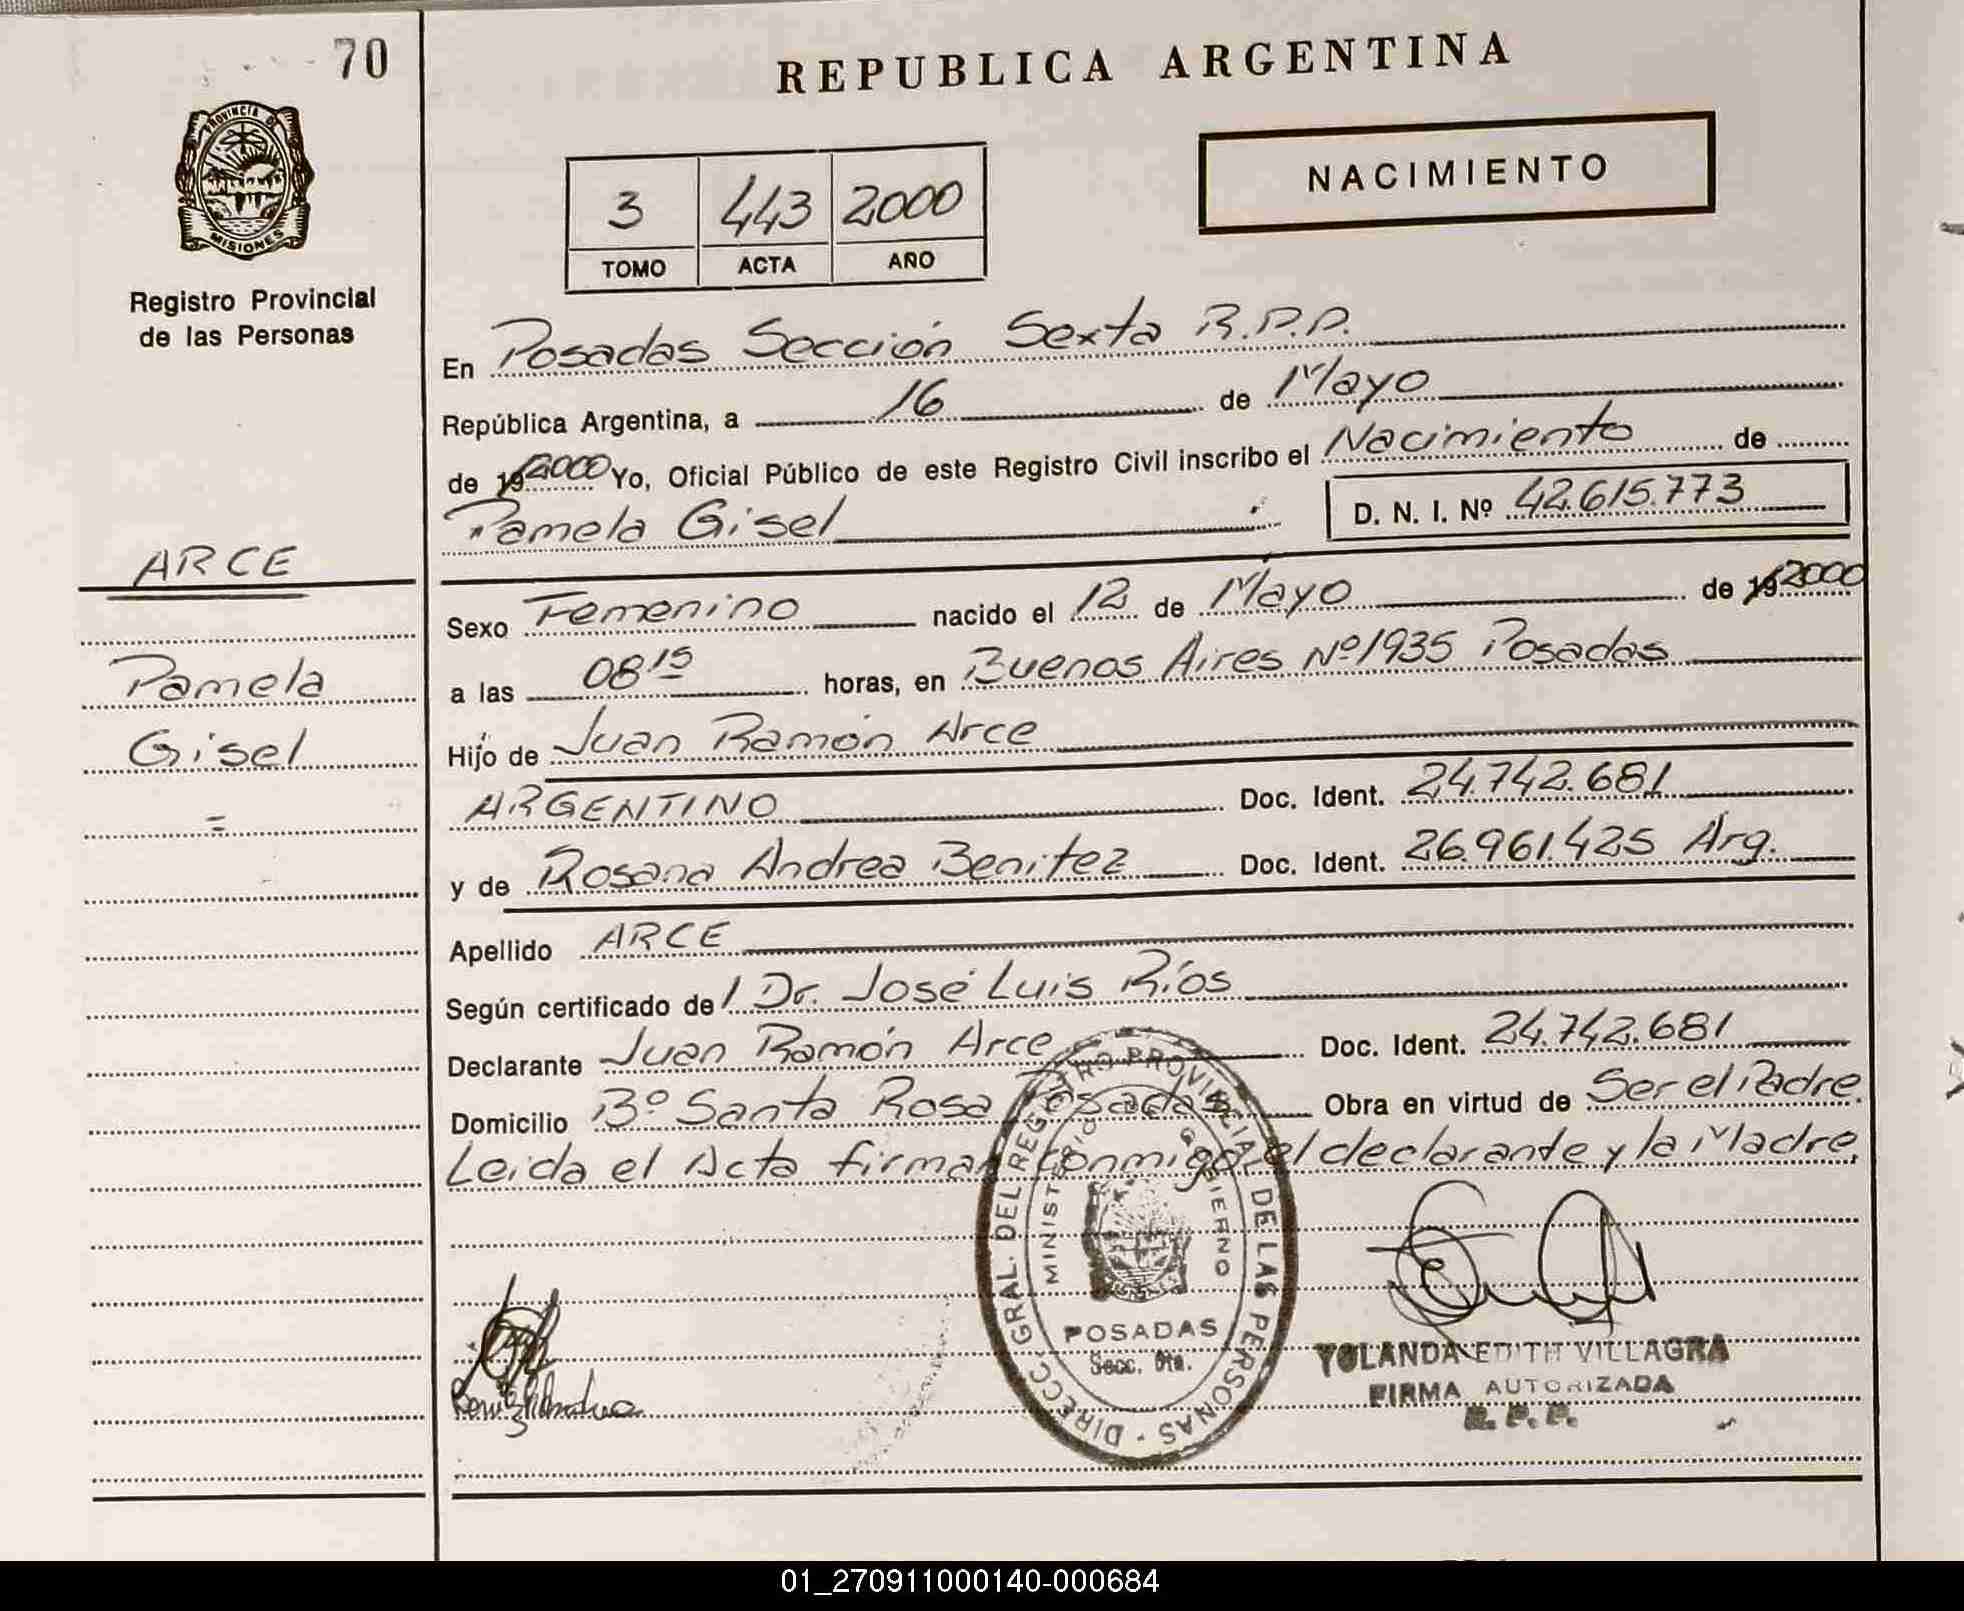 70
PROVINCIA DE
MISIONES
Registro Provincial
de las Personas
ARCE
Pamela
Gisel
=
REPUBLICA ARGENTINA
NACIMIENTO
3 443 2000
TOMO ACTA AÑO
En Posadas Sección Sexta R.P.P.
República Argentina, a 16 de Mayo
de 19 2000 Yo, Oficial Público de este Registro Civil inscribo el Nacimiento de
Pamela Gisel D. N. I. Nº 42.615.773
Sexo Femenino nacido el 12 de Mayo de 19 2000
a las 08 15 horas, en Buenos Aires Nº 1935 Posadas
Hijo de Juan Ramón Arce
ARGENTINO Doc. Ident. 24.742.681
y de Rosana Andrea Benitez Doc. Ident. 26.961.425 Arg.
Apellido ARCE
Según certificado de l Dr. José Luis Ríos
Declarante Juan Ramón Arce Doc. Ident. 24.742.681
Domicilio Bº Santa Rosa Posadas Obra en virtud de Ser el Padre.
Leida el Acta firman conmigo el declarante y la Madre.
DIRECC. GRAL. DEL REGISTRO PROVINCIAL DE LAS PERSONAS
MINISTERIO GOBIERNO
POSADAS
Secc. 6ta.
YOLANDA EDITH VILLAGRA
FIRMA AUTORIZADA
R. P. P.
01_270911000140-000684